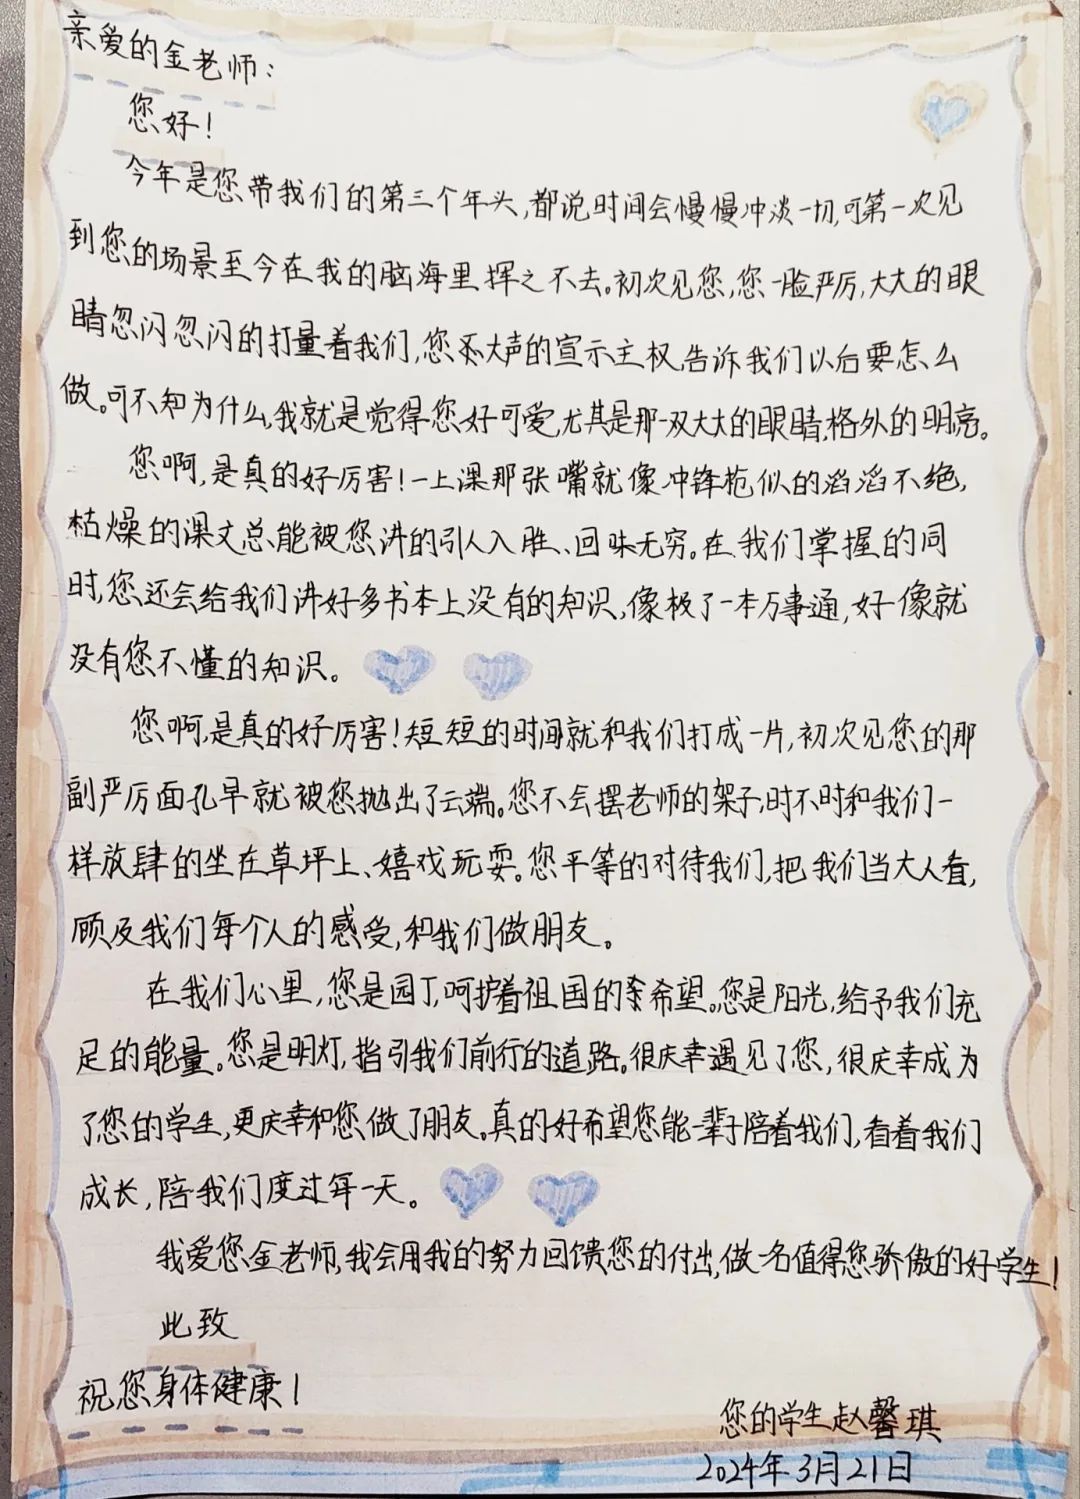 亲爱的金老师：
您好！
今年是您带我们的第三个年头，都说时间会慢慢冲淡一切，可第一次见
到您的场景至今在我的脑海里挥之不去。初次见您，您一脸严厉，大大的眼
睛忽闪忽闪的打量着我们，您大声的宣示主权，告诉我们以后要怎么
做。可不知为什么，我就是觉得您好可爱，尤其是那一双大大的眼睛，格外的明亮。
您啊，是真的好厉害！一上课那张嘴就像冲锋枪似的滔滔不绝，
枯燥的课文总能被您讲的引人入胜、回味无穷。在我们掌握的同
时，您还会给我们讲好多书本上没有的知识，像极了一本万事通，好像就
没有您不懂的知识。
您啊，是真的好厉害！短短的时间就和我们打成一片，初次见您的那
副严厉面孔早就被您抛出了云端。您不会摆老师的架子，时不时和我们一
样放肆的坐在草坪上、嬉戏玩耍。您平等的对待我们，把我们当大人看，
顾及我们每个人的感受，和我们做朋友。
在我们心里，您是园丁，呵护着祖国的希望。您是阳光，给予我们充
足的能量。您是明灯，指引我们前行的道路。很庆幸遇见了您，很庆幸成为
了您的学生，更庆幸和您做了朋友。真的好希望您能一辈子陪着我们，看着我们
成长，陪我们度过每一天。
我爱您金老师，我会用我的努力回馈您的付出，做一名值得您骄傲的好学生！
此致
祝您身体健康！
您的学生赵馨琪
2024年3月21日